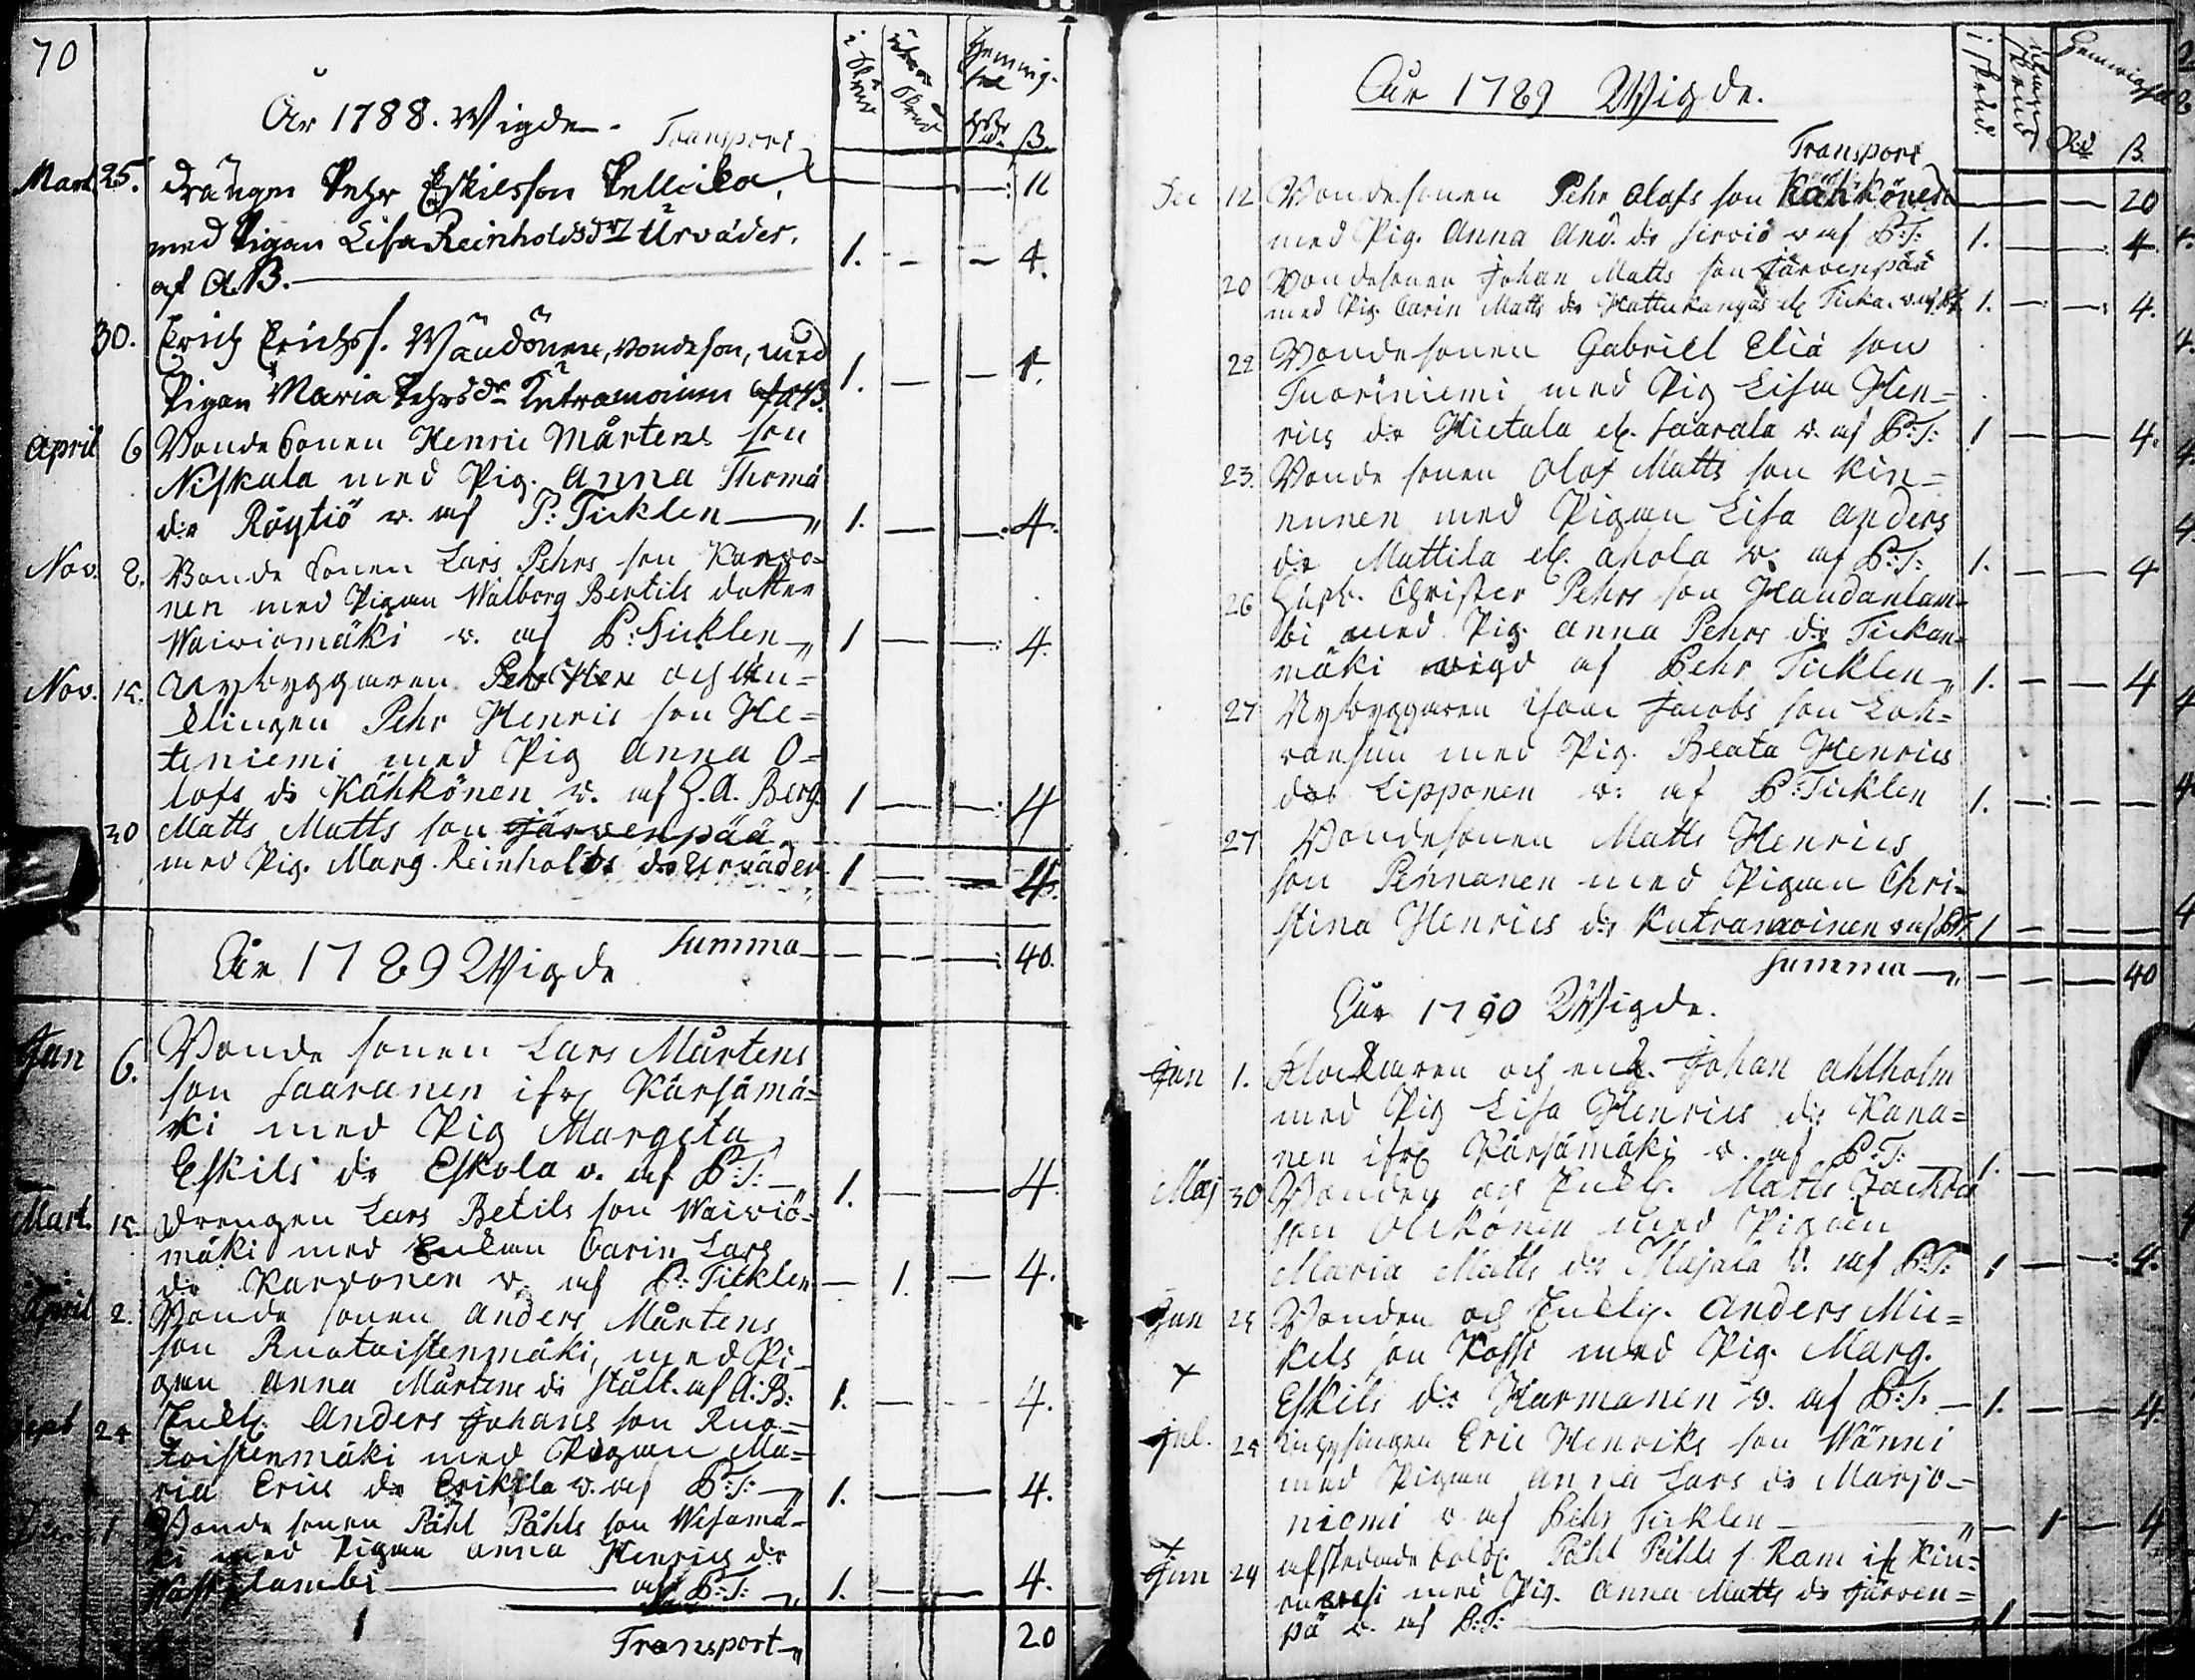 70
År 1788. Wigde.
i Sokn utom Sokn Hemmig-
Transport ß.
Mart 25. Drängen Pehr Eskilsson Pellicka, 16
med Pigan Lisa Reinholdsdr Urväder.
af A.B. 1. — — 4.
30. Erich Erichss. Wändönen, bondeson, med
Pigan Maria Pehrsdr Kutramoinen af A.B. 1. — — 4.
April 6 Bonde Sonen Henric Mårtens son
Niskala med Pig. Anna Thomæ
dr Röytiö v. af P: Ticklen 1. — — 4.
Nov. 2. Bonde Sonen Lars Pehrs son Karvo=
nen med Pigan Walborg Bertils dotter
Waiviomäki v. af P: Ticklen 1 — — 4.
Nov. 15. Nybyggaren och
Pehr Henric son He=
teniemi med Pig Anna O=
lofs dr Kähkönen v. af A. Berg. 1 — — 4
30 Matts Matts son Järvenpää
med Pig. Marg. Reinholds dr Urväder 1 — — 4.
Summa — — — 40.
År 1789 Wigde
Jan 6. Bonde sonen Lars Mårtens
son Saaranen ifr. Kärsämä=
ki med Pig Margeta
Eskils dr Eskola v. af P:T: 1. — — 4.
Mart. 15. Drengen Lars Betils son Waiviö=
mäki med Enkan Carin Lars
dr Karvonen v. af P: Ticklen — 1. — 4.
April 2. Bonde sonen Anders Mårtens
son Ruotoistenmäki, med Pi=
gan Anna Mårtens dr Stålt. af A:B: 1. — — 4.
Sept 24 Enkl. Anders Johans son Ruo=
toistenmäki med Pigan Ma=
ria Erics dr Erikkla v. af P:T: 1. — — 4.
1 Bonde sonen Påhl Påhls son Wesamä=
ki med Pigan Anna Henrics dr
af P:T: 1. — — 4.
Transport 20
År 1789 Wigde.
i Sokn. utom Sokn
Rd ß.
Transport
Dec 12 Bondesonen Pehr Olofs son Kähkönen — — — 20
med Pig. Anna And. dr Sirviö v af P:T: 1. — — 4.
20 Bondesonen Johan Matts son Järvenpää
med Pig. Carin Matts dr Hattukangas el. Ticka. v af P.T. 1. — — 4.
22 Bondesonen Gabriel Eliæ son
Tuoriniemi med Pig Lisa Hen=
rics dr Hietala el. Saarala v. af P:T: 1 — — 4.
23. Bonde sonen Olof Matts son Kin=
nunen med Pigan Lisa Anders
dr Mattila el. Ahola v. af P:T: 1. — — 4
26 Christer Pehrs son Haudanlam=
bi med Pig. Anna Pehrs dr Tickan=
mäki wigd af Pehr Ticklen 1. — — 4
27 Nybyggaren Isac Jacobs son Loh=
vansuu med Pig. Beata Henrics
dr Lipponen v: af P: Ticklen 1. — — —
27 Bondesonen Matts Henrics
son Pennanen med Pigan Chri=
stina Henrics dr Kutramoinen v af P.T. 1 — — —
Summa — — — 40
År 1790 Wigde.
Jan 1. Klockaren och enkl. Johan Ahlholm
med Pig Lisa Henrics dr Kana=
nen ifr. Kärsämäki v. af P:T: 1. — — —
Maj 30 Bonden och Enkl. Matts
son Olikönen med Pigan
Maria Matts dr Majala v. af P:T: 1 — — 4.
Jun 25 Bonden och Enkl. Anders Mic=
kels son Kossi med Pig. Marg.
Eskils dr Harmanen v. af P:T: 1. — — 4.
Jul. 25 Eric Henriks son Wänni
med Pigan Anna Lars dr Marjo=
niemi v. af Pehr Ticklen — 1 — 4
Jun 24 Afskedade Påhl Påhls s. Ram if. Kiu=
ruwesi med Pig. Anna Matts dr Järven=
pä v. af P:T: 1